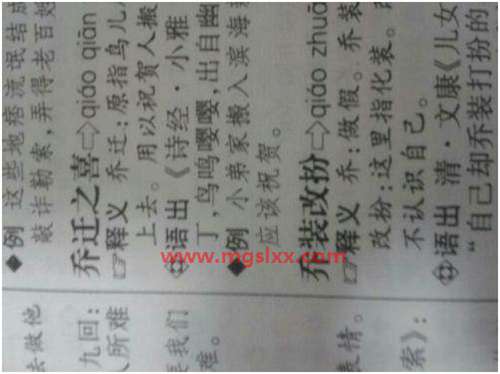 ◆例 这些地痞流氓结成
敲诈勒索，弄得老百姓
乔迁之喜⇨qiáo qiān
☞释义 乔迁：原指鸟儿
上去。用以祝贺人搬
语出 《诗经·小雅
丁，鸟鸣嘤嘤，出自幽
◆例 小弟家搬入滨海
应该祝贺。
乔装改扮⇨qiáo zhuā
☞释义 乔：做假。乔装
改扮：这里指化装。
不认识自己。
语出 清·文康《儿女
“自己却乔装打扮的
去做他
九回：
人所难
我们
难。
表情。
索》：
www.mgslxx.com